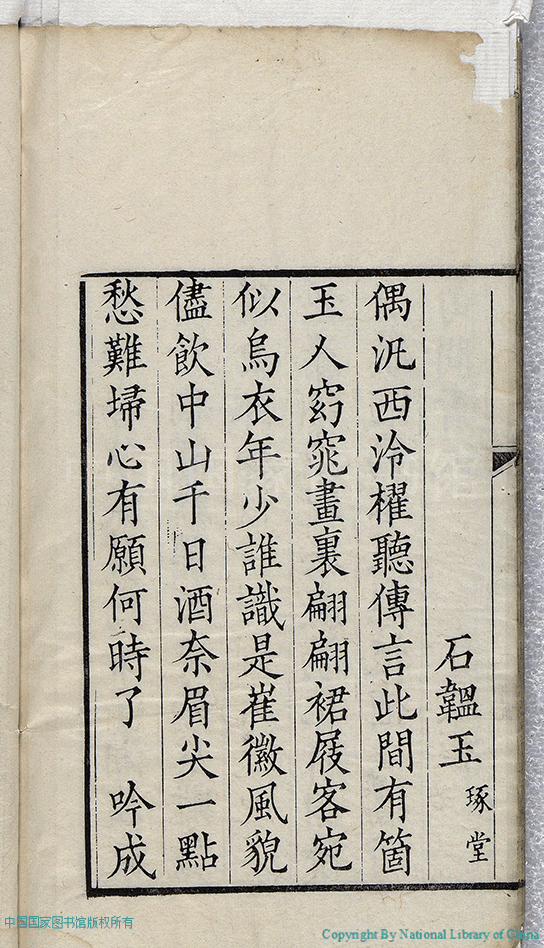 石韞玉琢堂
偶汎西泠櫂聽傳言此間有箇
玉人窈窕畫裏翩翩裙屐客宛
似烏衣年少誰識是崔徽風貌
儘飲中山千日酒奈眉尖一點
愁難埽心有願何時了　吟成
中国国家图书馆版权所有
Copyright By National Library of China